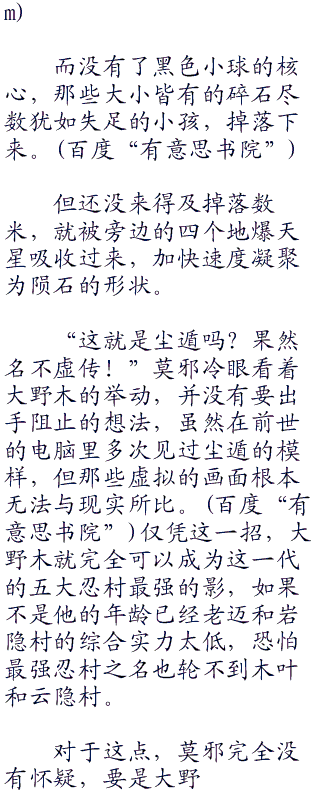 m)
而没有了黑色小球的核
心，那些大小皆有的碎石尽
数犹如失足的小孩，掉落下
来。(百度“有意思书院”)
但还没来得及掉落数
米，就被旁边的四个地爆天
星吸收过来，加快速度凝聚
为陨石的形状。
“这就是尘遁吗？果然
名不虚传！”莫邪冷眼看着
大野木的举动，并没有要出
手阻止的想法，虽然在前世
的电脑里多次见过尘遁的模
样，但那些虚拟的画面根本
无法与现实所比。(百度“有
意思书院”)仅凭这一招，大
野木就完全可以成为这一代
的五大忍村最强的影，如果
不是他的年龄已经老迈和岩
隐村的综合实力太低，恐怕
最强忍村之名也轮不到木叶
和云隐村。
对于这点，莫邪完全没
有怀疑，要是大野